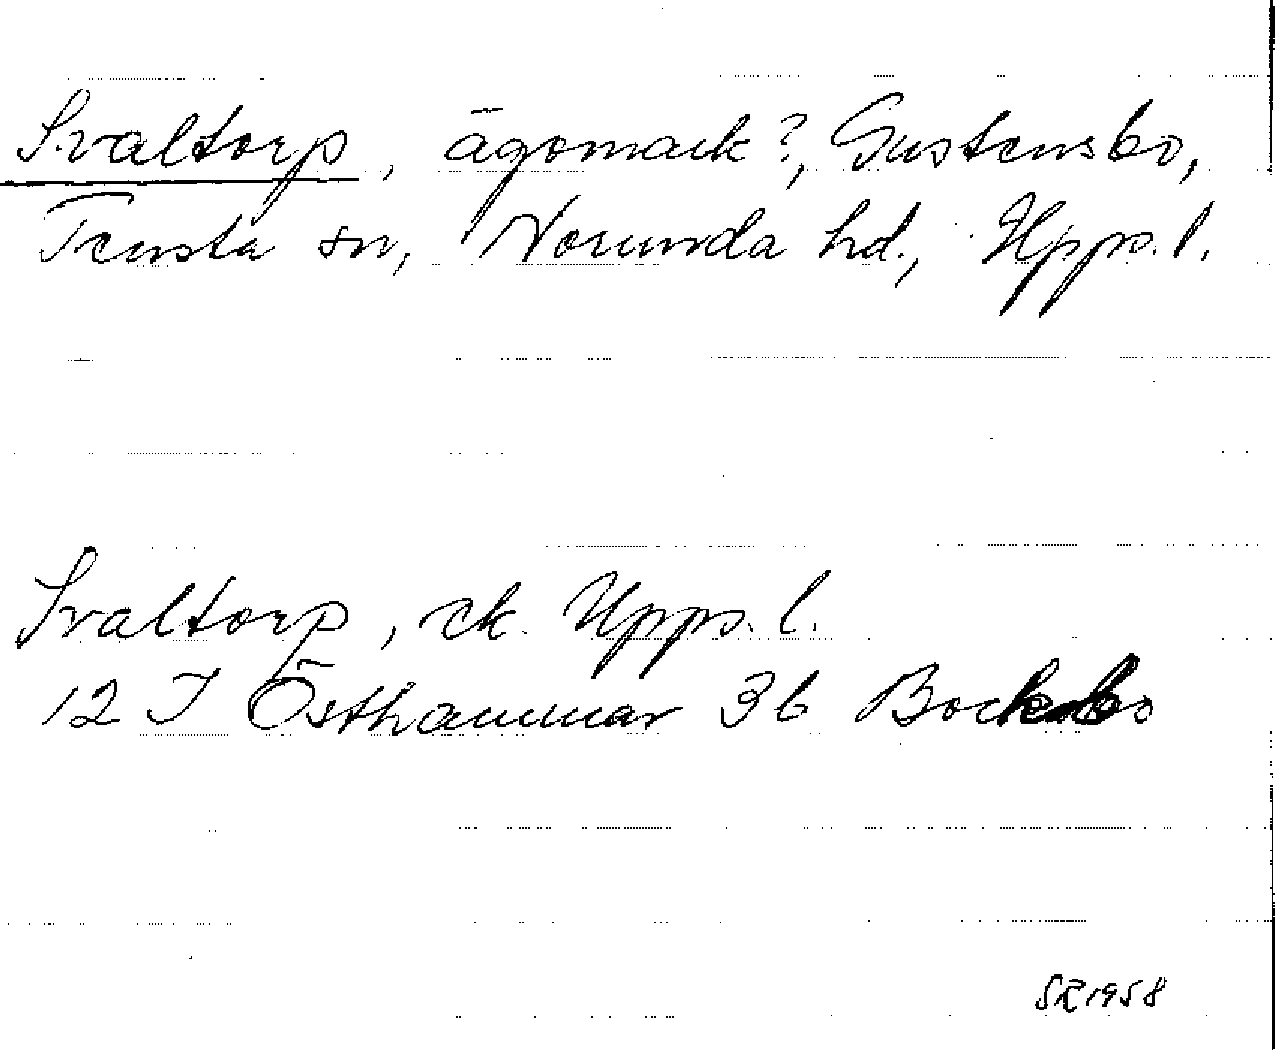 Svaltorp, ägomark?, Gustensbo,
Tensta sn, Norunda hd., Upps.l.
Svaltorp, ek. Upps.l.
12 I Östhammar 3b Bocksbo
SR 1958